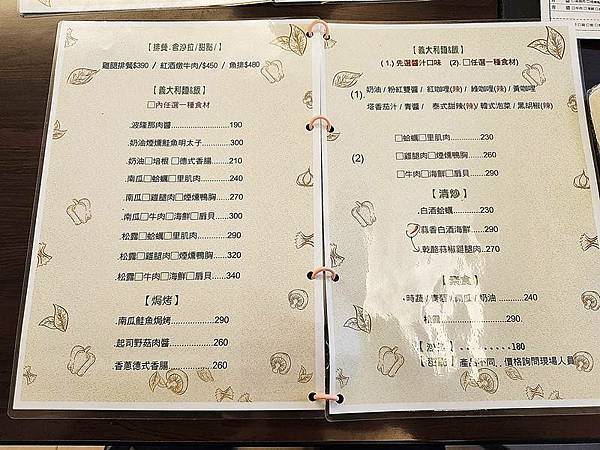 【排餐.含沙拉/甜點/】
雞腿排餐$390 / 紅酒燉牛肉/$450 / 魚排$480
【義大利麵&飯】
□內任選一種食材
.波隆那肉醬................190
.奶油煙燻鮭魚明太子.........300
.奶油□培根 □德式香腸.......210
.南瓜□蛤蠣□里肌肉..........240
.南瓜□雞腿肉□煙燻鴨胸.....270
.南瓜□牛肉□海鮮□扇貝.....300
.松露□蛤蠣□里肌肉..........290
.松露□雞腿肉□煙燻鴨胸.....320
.松露□牛肉□海鮮□扇貝.....340
【焗烤】
.南瓜鮭魚焗烤..............290
.起司野菇肉醬..............260
.香蔥德式香腸..............260
【義大利麵&飯】
(1.)先選醬汁口味 (2).□任選一種食材)
(1). 奶油 / 粉紅雙醬 / 紅咖哩(辣) / 綠咖哩(辣) / 黃咖哩
塔香茄汁 / 青醬 / 泰式甜辣(辣)/ 韓式泡菜 / 黑胡椒(辣)
□蛤蠣□里肌肉..........230
(2) □雞腿肉□煙燻鴨胸.....260
□牛肉□海鮮□扇貝........290
【清炒】
.白酒蛤蠣.............230
.蒜香白酒海鮮.........290
.乾酪蒜椒雞腿肉..270
【素食】
.時蔬 / 青醬 / 南瓜 / 奶油 ....240
松露...............290
.........180
產品不同..價格詢問現場人員